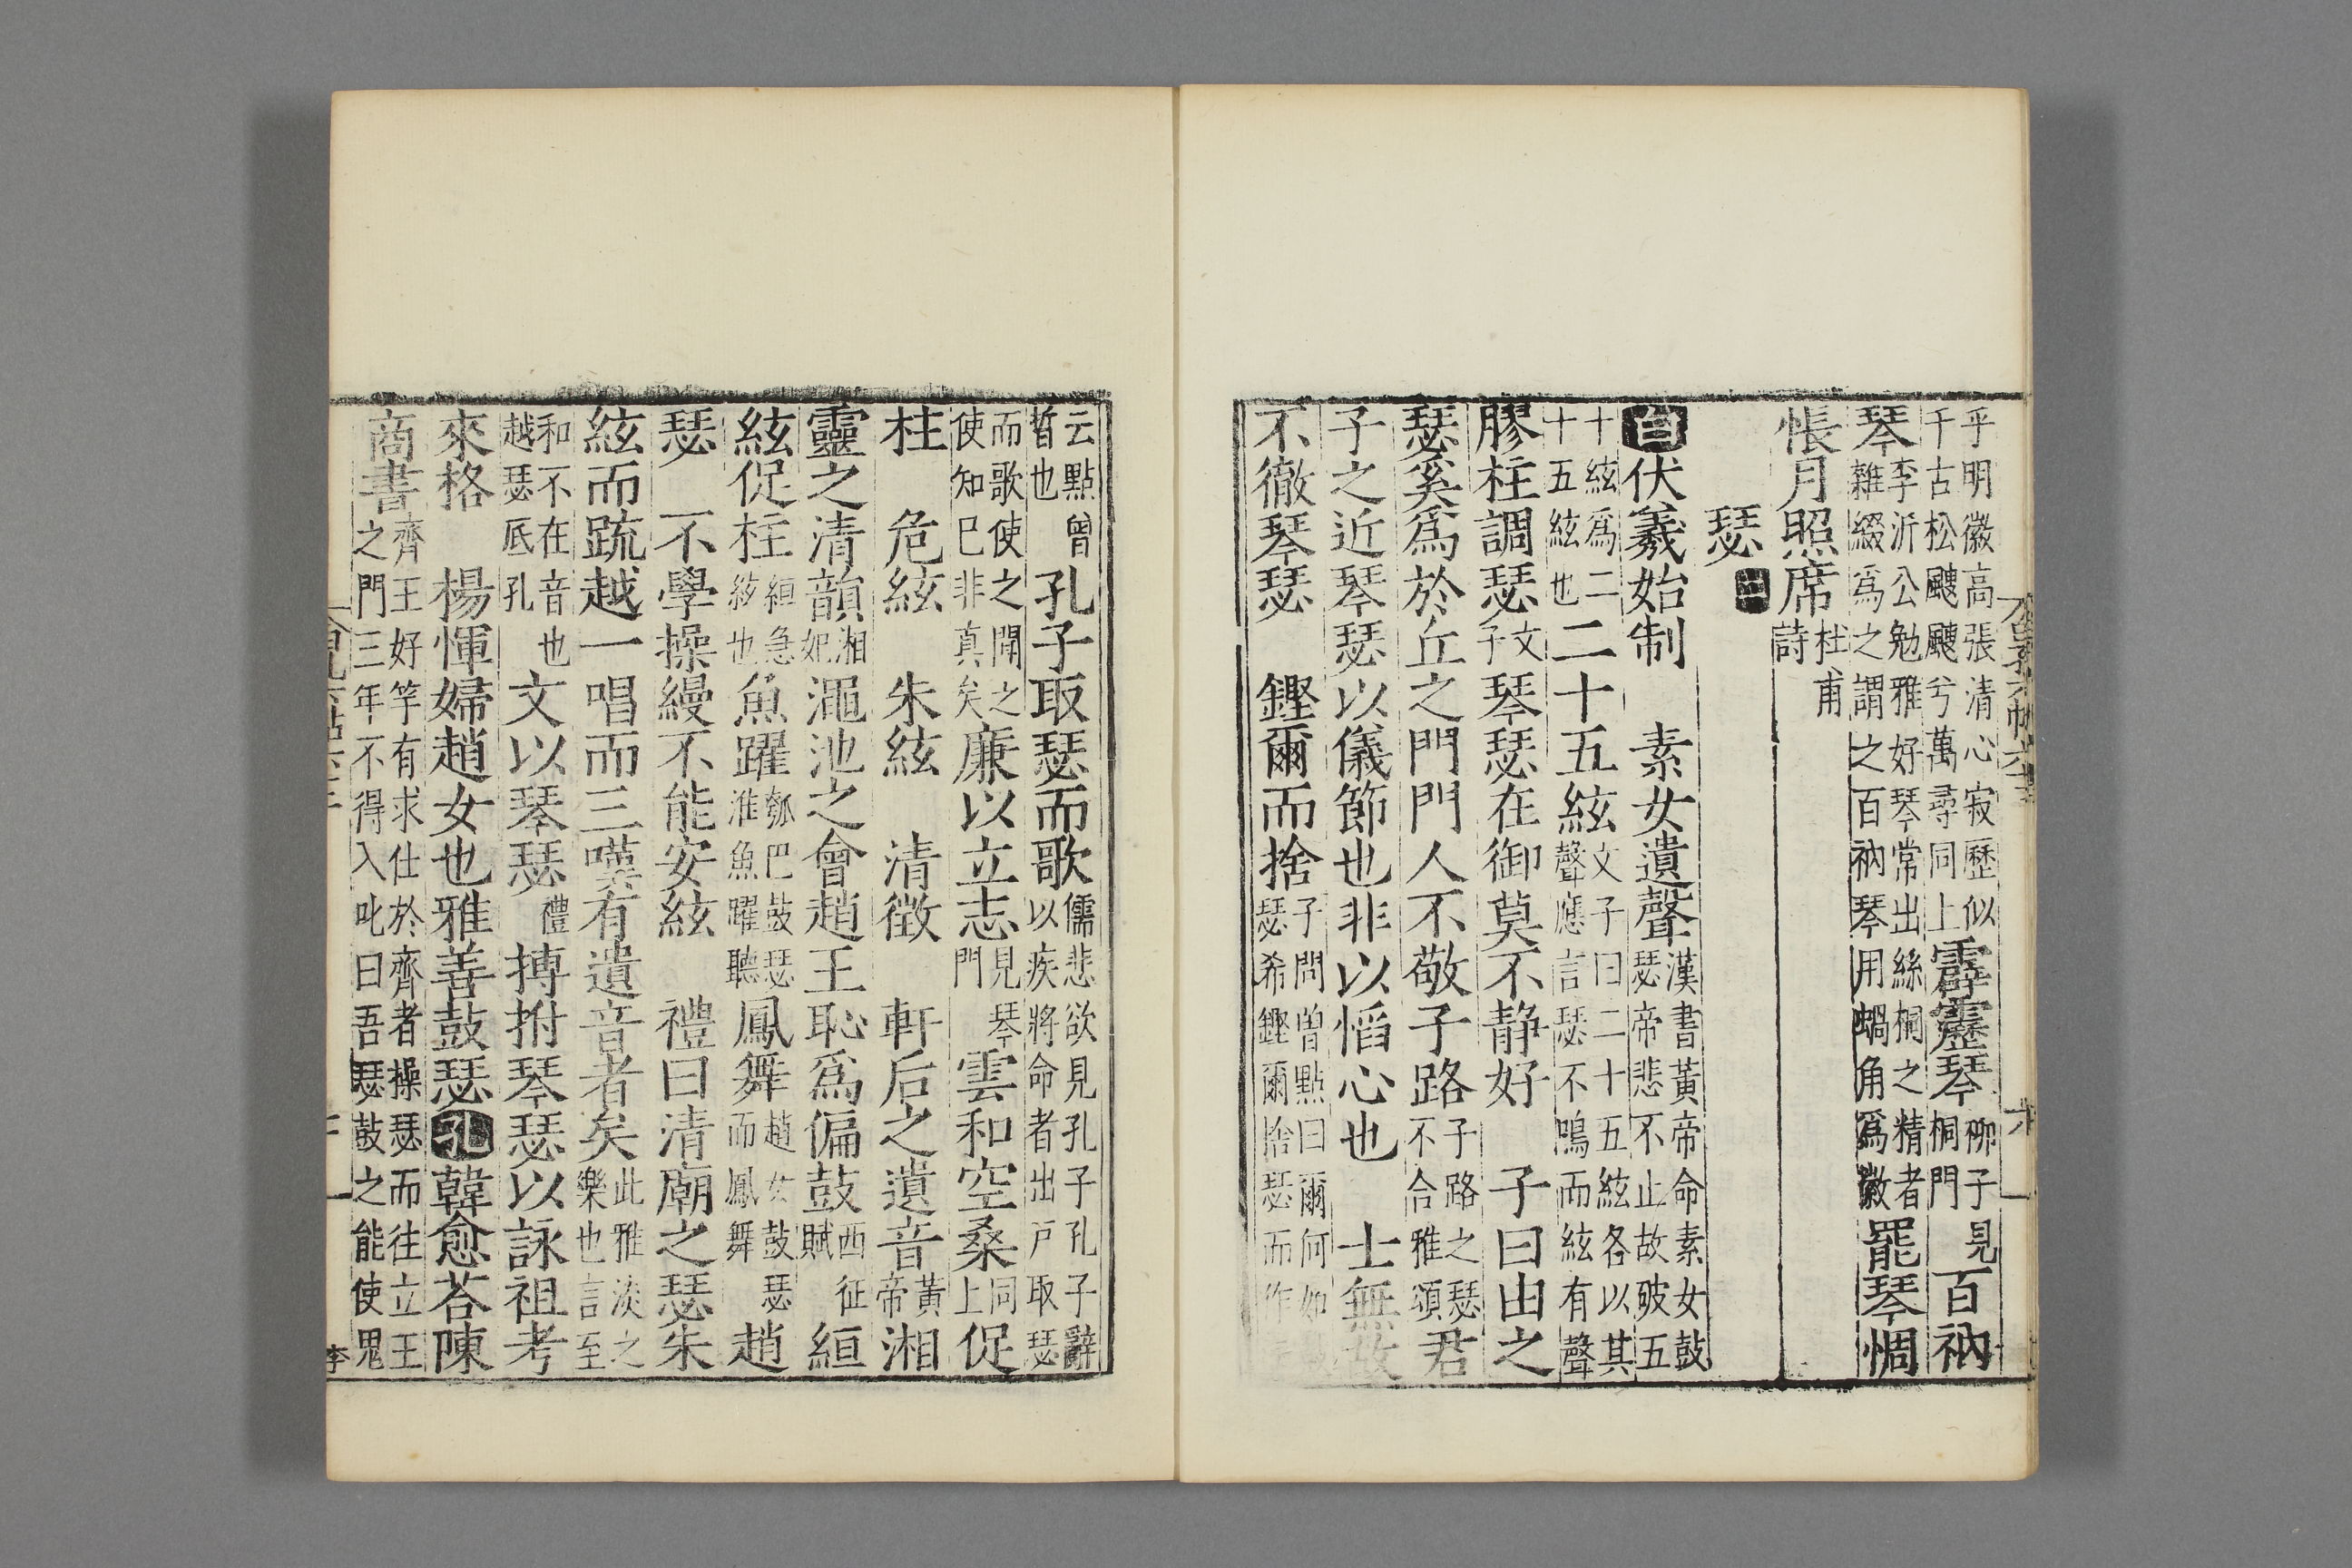 乎明徽高張清心寂歷似千古松颼颼兮萬尋同上霹靂琴柳子桐門見百衲
琴李沂公勉雅好琴常出絲桐之精者雜綴爲之謂之百衲琴用蝸角爲徽罷琴惆
悵月照席杜甫詩
瑟二
白伏羲始制　素女遺聲漢書黃帝命素女鼓瑟帝悲不止故破五
十絃爲二十五絃也二十五絃文子曰二十五絃各以其聲應言瑟不鳴而絃有聲
膠柱調瑟文子琴瑟在御莫不静好　子曰由之
瑟奚爲於丘之門門人不敬子路子路之瑟不合雅頌君
子之近琴瑟以儀節也非以慆心也　士無故
不徹琴瑟　鏗爾而捨子問曾點曰爾何如瑟希鏗爾捨瑟而作
云點曾晳也孔子取瑟而歌儒悲欲見孔子孔子辭以疾將命者出戸取瑟
而歌使之聞之使知巳非真矣廉以立志見琴門雲和空桑同上促
柱　危絃　朱絃　清徴　軒后之遺音黃帝湘
靈之清韻湘妃澠池之會趙王恥爲偏鼓西征賦絙
絃促柱絙急絃也魚躍瓠巴鼓瑟淮魚躍聽鳳舞趙女鼓瑟而鳳舞趙
瑟　不學操縵不能安絃　禮曰清廟之瑟朱
絃而䟽越一唱而三嘆有遺音者矣此雅淡之樂也言至
和不在音也越瑟底孔文以琴瑟禮搏拊琴瑟以詠祖考
來格　楊惲婦趙女也雅善鼓瑟孔韓愈荅陳
商書齊王好竽有求仕於齊者操瑟而往立王之門三年不得入叱曰吾瑟鼓之能使鬼